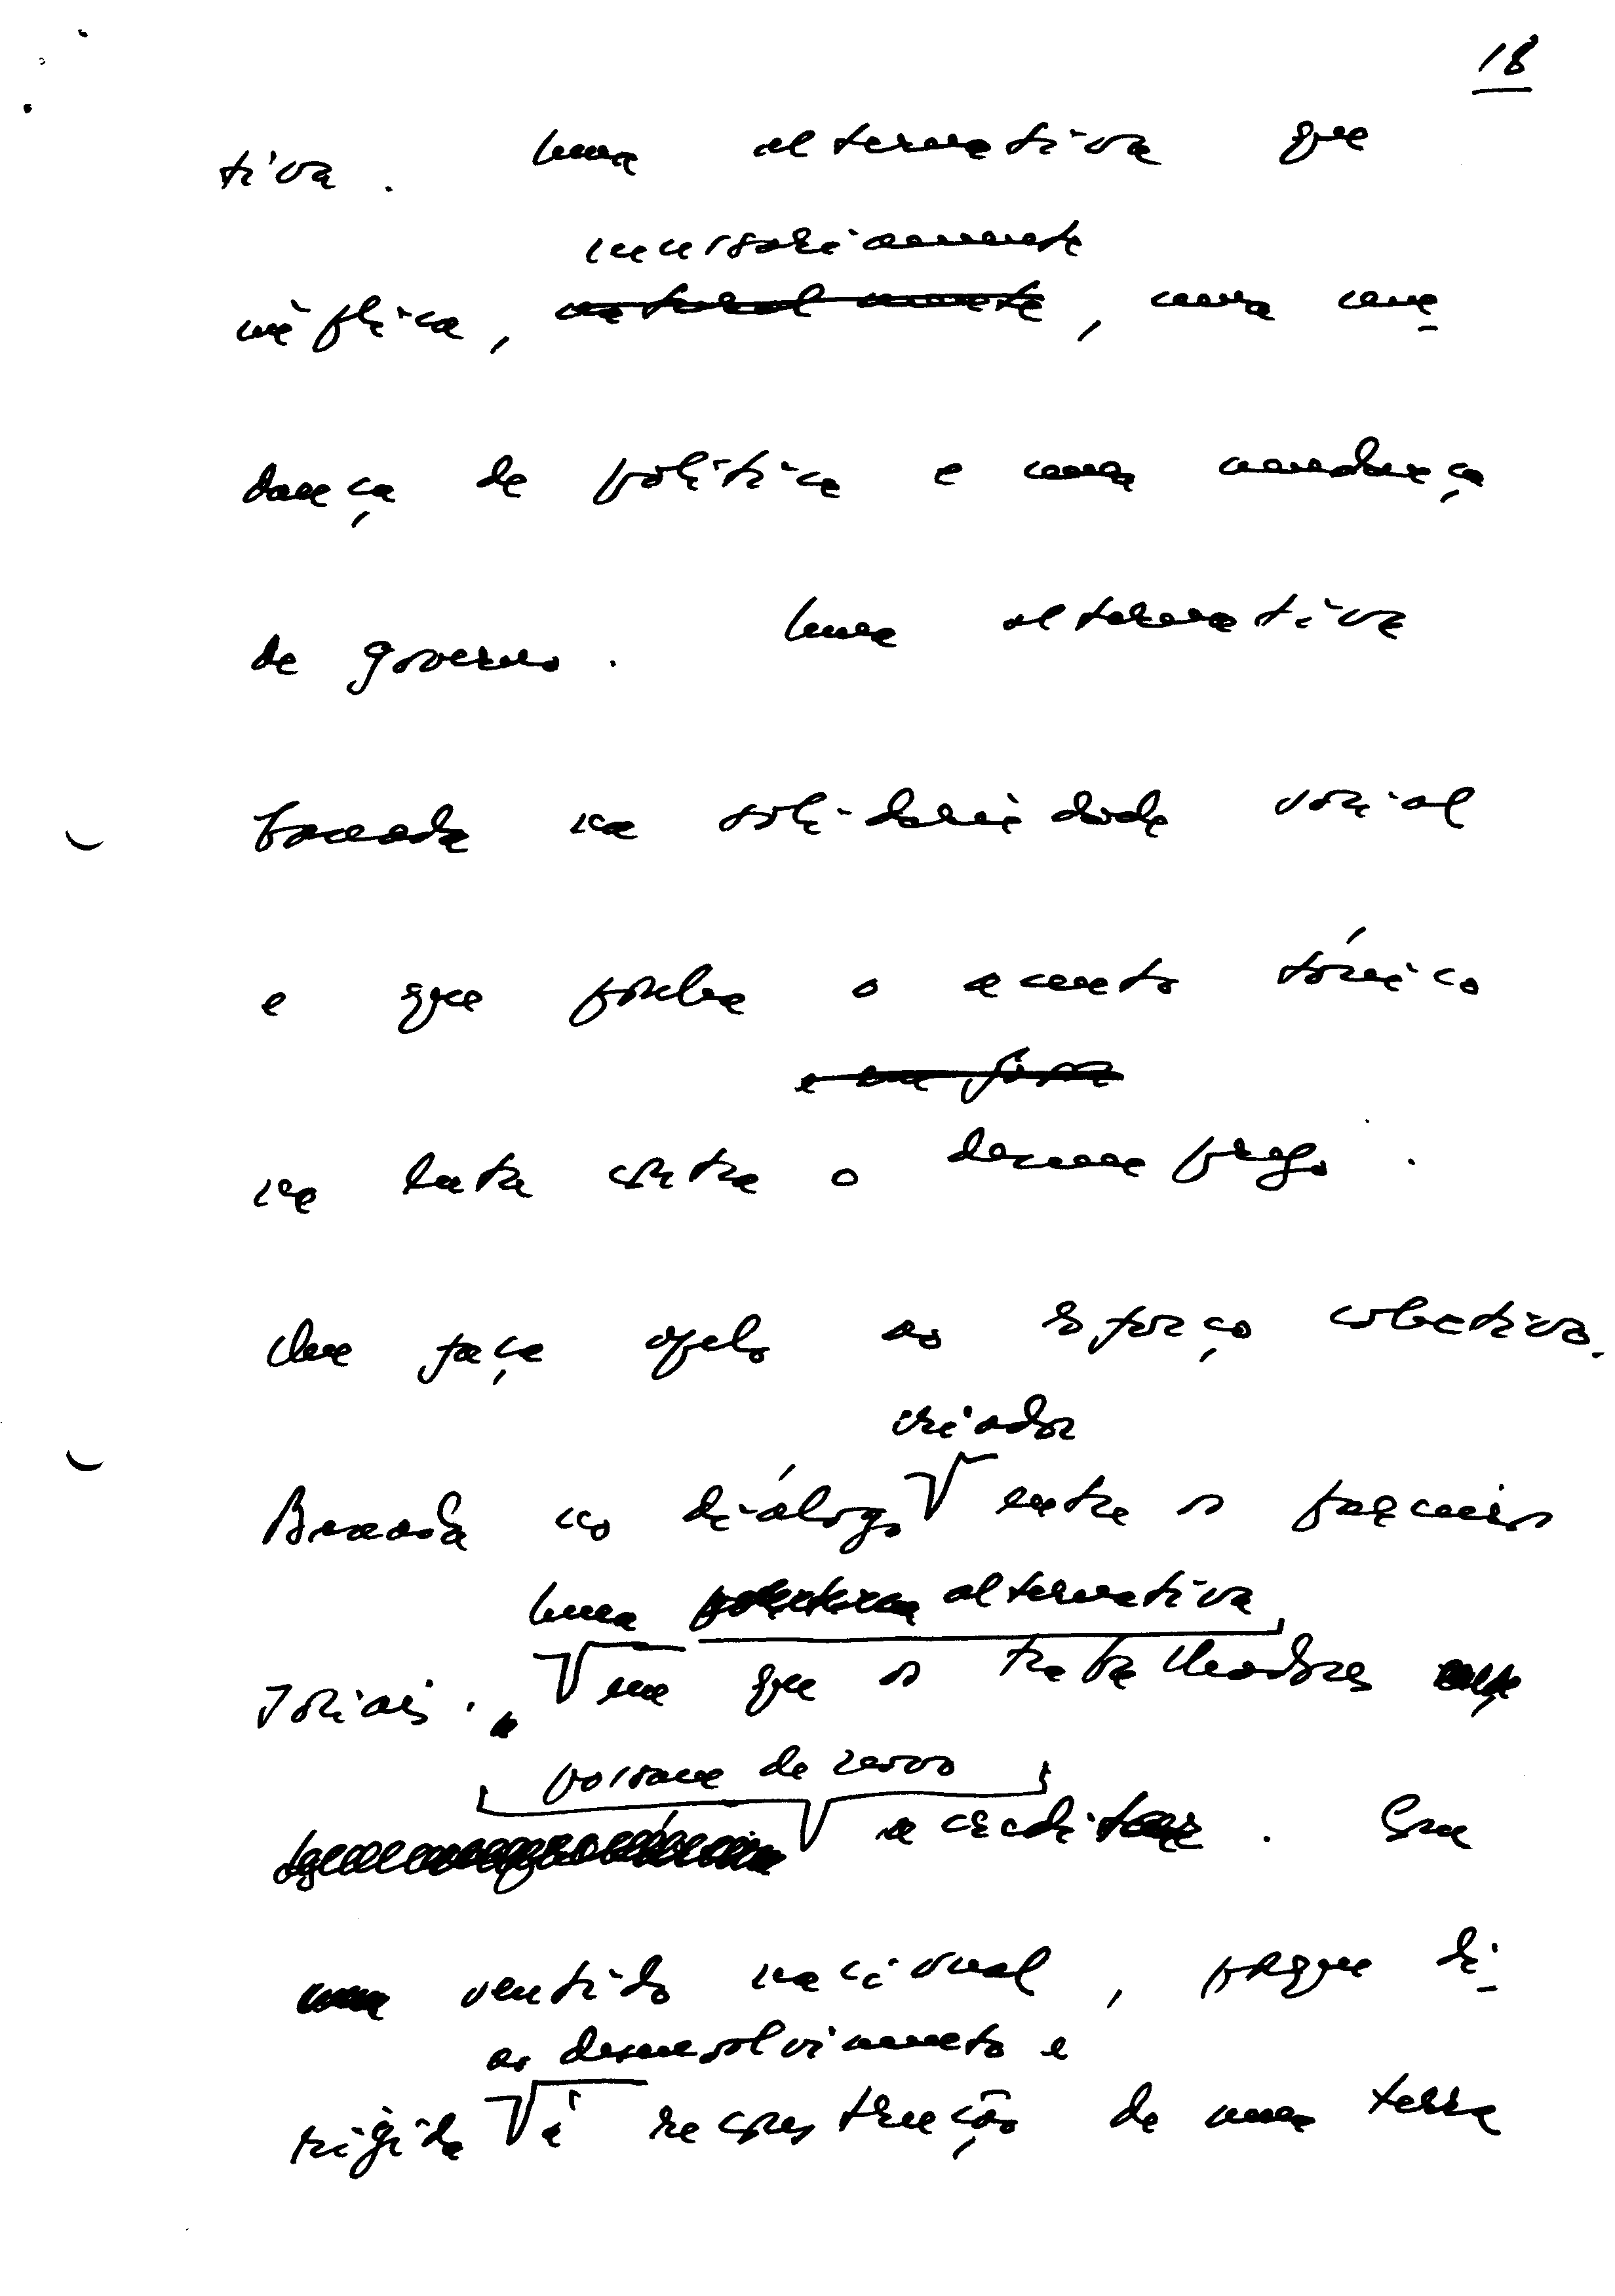 18
tiva. Uma alternativa que
necessariamente
implica, naturalmente, uma mu-
dança de política e uma mudança
de governo. Uma alternativa
baseada na solidariedade social
e que ponha o acento tónico
e em força
na luta contra o desemprego.
Que faça apelo ao esforço colectivo.
criador
Baseada no diálogo entre os parceiros
Uma alternativa
sociais. em que os trabalhadores
possam de novo
acreditar. Em
sentido nacional, porque di-
ao desenvolvimento e
rigida à reconstrução de uma terra